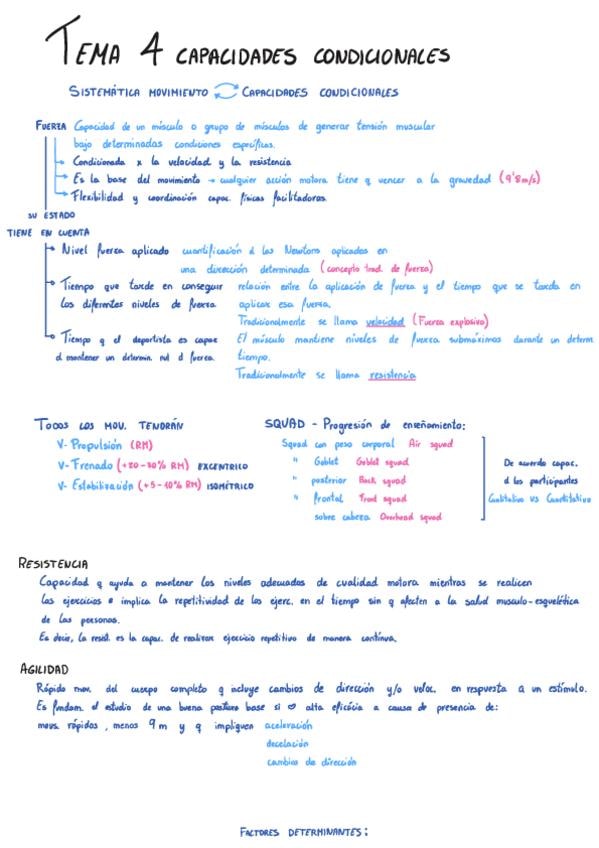 TEMA 4 CAPACIDADES CONDICIONALES
SISTEMÁTICA MOVIMIENTO CAPACIDADES CONDICIONALES
FUERZA Capacidad de un músculo o grupo de músculos de generar tensión muscular
bajo determinadas condiciones específicas.
Condicionada x la velocidad y la resistencia
Es la base del movimiento → cualquier acción motora tiene q vencer a la gravedad (9'8m/s)
Flexibilidad y coordinación capac. físicas facilitadoras.
SU ESTADO
TIENE EN CUENTA
Nivel fuerza aplicado cuantificación d los Newtons aplicados en
una dirección determinada (concepto trad. de fuerza)
Tiempo que tarde en conseguir relación entre la aplicación de fuerza y el tiempo que se tarda en
los diferentes niveles de fuerza aplicar esa fuerza.
Tradicionalmente se llama velocidad (Fuerza explosiva)
Tiempo q el deportista es capaz El músculo mantiene niveles de fuerza submáximos durante un determ
d mantener un determin. nvl d fuerza. tiempo.
Tradicionalmente se llama resistencia
TODOS LOS MOV. TENDRÁN
V- Propulsión (RM)
V- Frenado (+20-30% RM) EXCENTRICO
V- Estabilización (+5-10% RM) ISOMÉTRICO
SQUAD - Progresión de enseñamiento:
Squad con peso corporal Air squad
" Goblet Goblet squad
" posterior Back squad
" frontal Front squad
sobre cabeza Overhead squad
De acuerdo capac.
d los participantes
Cualitativo VS Cuantitativo
RESISTENCIA
Capacidad q ayuda a mantener los niveles adecuados de cualidad motora mientras se realicen
los ejercicios e implica la repetitividad de los ejerc. en el tiempo sin q afecten a la salud musculo-esquelética
de las personas.
Es decir, la resist. es la capac. de realizar ejercicio repetitivo de manera contínua.
AGILIDAD
Rápido mov. del cuerpo completo q incluye cambios de dirección y/o veloc. en respuesta a un estímulo.
Es fundam. el estudio de una buena postura base si alta eficácia a causa de presencia de:
movs. rápidos, menos 9m y q impliquen aceleración
decelación
cambios de dirección
FACTORES DETERMINANTES: